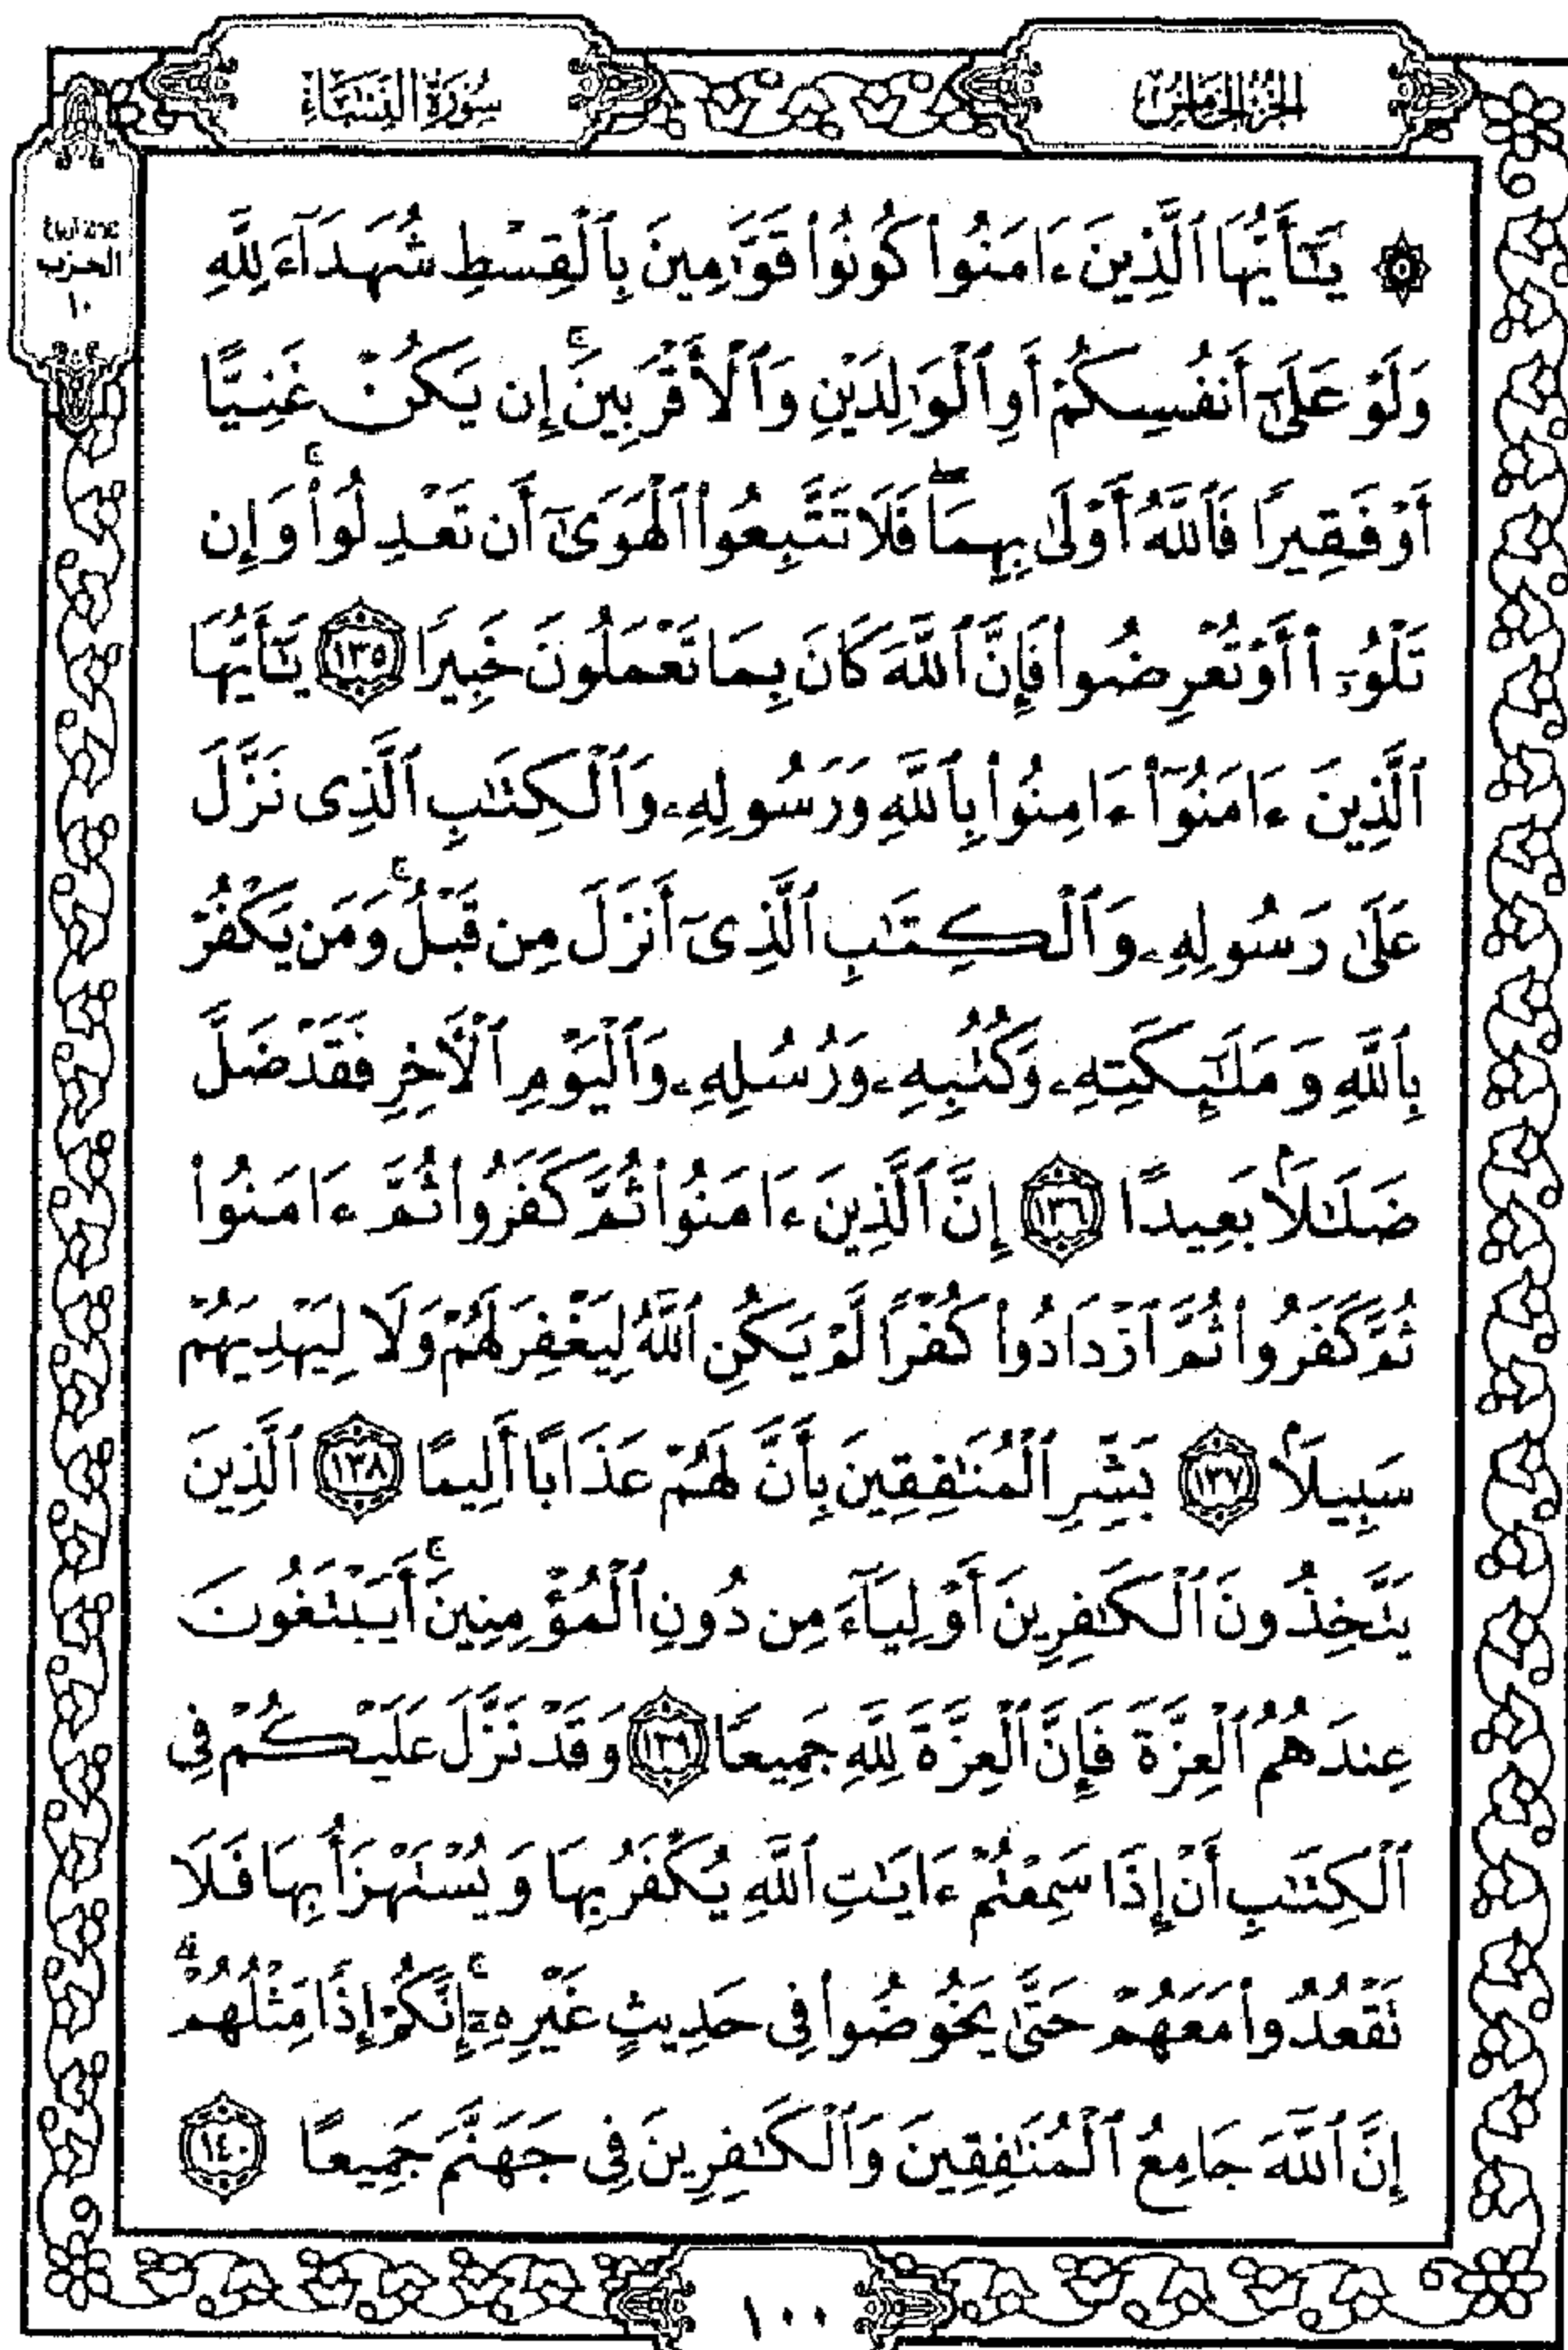 الجزء الخامس
سورة النساء
الحزب
١٠
۞ يَٰٓأَيُّهَا ٱلَّذِينَ ءَامَنُوا۟ كُونُوا۟ قَوَّٰمِينَ بِٱلْقِسْطِ شُهَدَآءَ لِلَّهِ
وَلَوْ عَلَىٰٓ أَنفُسِكُمْ أَوِ ٱلْوَٰلِدَيْنِ وَٱلْأَقْرَبِينَ ۚ إِن يَكُنْ غَنِيًّا
أَوْ فَقِيرًا فَٱللَّهُ أَوْلَىٰ بِهِمَا ۖ فَلَا تَتَّبِعُوا۟ ٱلْهَوَىٰٓ أَن تَعْدِلُوا۟ ۚ وَإِن
تَلْوُۥٓا۟ أَوْ تُعْرِضُوا۟ فَإِنَّ ٱللَّهَ كَانَ بِمَا تَعْمَلُونَ خَبِيرًا ١٣٥ يَٰٓأَيُّهَا
ٱلَّذِينَ ءَامَنُوٓا۟ ءَامِنُوا۟ بِٱللَّهِ وَرَسُولِهِۦ وَٱلْكِتَٰبِ ٱلَّذِى نَزَّلَ
عَلَىٰ رَسُولِهِۦ وَٱلْكِتَٰبِ ٱلَّذِىٓ أَنزَلَ مِن قَبْلُ ۚ وَمَن يَكْفُرْ
بِٱللَّهِ وَمَلَٰٓئِكَتِهِۦ وَكُتُبِهِۦ وَرُسُلِهِۦ وَٱلْيَوْمِ ٱلْءَاخِرِ فَقَدْ ضَلَّ
ضَلَٰلًۢا بَعِيدًا ١٣٦ إِنَّ ٱلَّذِينَ ءَامَنُوا۟ ثُمَّ كَفَرُوا۟ ثُمَّ ءَامَنُوا۟
ثُمَّ كَفَرُوا۟ ثُمَّ ٱزْدَادُوا۟ كُفْرًا لَّمْ يَكُنِ ٱللَّهُ لِيَغْفِرَ لَهُمْ وَلَا لِيَهْدِيَهُمْ
سَبِيلًۢا ١٣٧ بَشِّرِ ٱلْمُنَٰفِقِينَ بِأَنَّ لَهُمْ عَذَابًا أَلِيمًا ١٣٨ ٱلَّذِينَ
يَتَّخِذُونَ ٱلْكَٰفِرِينَ أَوْلِيَآءَ مِن دُونِ ٱلْمُؤْمِنِينَ ۚ أَيَبْتَغُونَ
عِندَهُمُ ٱلْعِزَّةَ فَإِنَّ ٱلْعِزَّةَ لِلَّهِ جَمِيعًا ١٣٩ وَقَدْ نَزَّلَ عَلَيْكُمْ فِى
ٱلْكِتَٰبِ أَنْ إِذَا سَمِعْتُمْ ءَايَٰتِ ٱللَّهِ يُكْفَرُ بِهَا وَيُسْتَهْزَأُ بِهَا فَلَا
تَقْعُدُوا۟ مَعَهُمْ حَتَّىٰ يَخُوضُوا۟ فِى حَدِيثٍ غَيْرِهِۦٓ ۚ إِنَّكُمْ إِذًا مِّثْلُهُمْ ۗ
إِنَّ ٱللَّهَ جَامِعُ ٱلْمُنَٰفِقِينَ وَٱلْكَٰفِرِينَ فِى جَهَنَّمَ جَمِيعًا ١٤٠
١٠٠